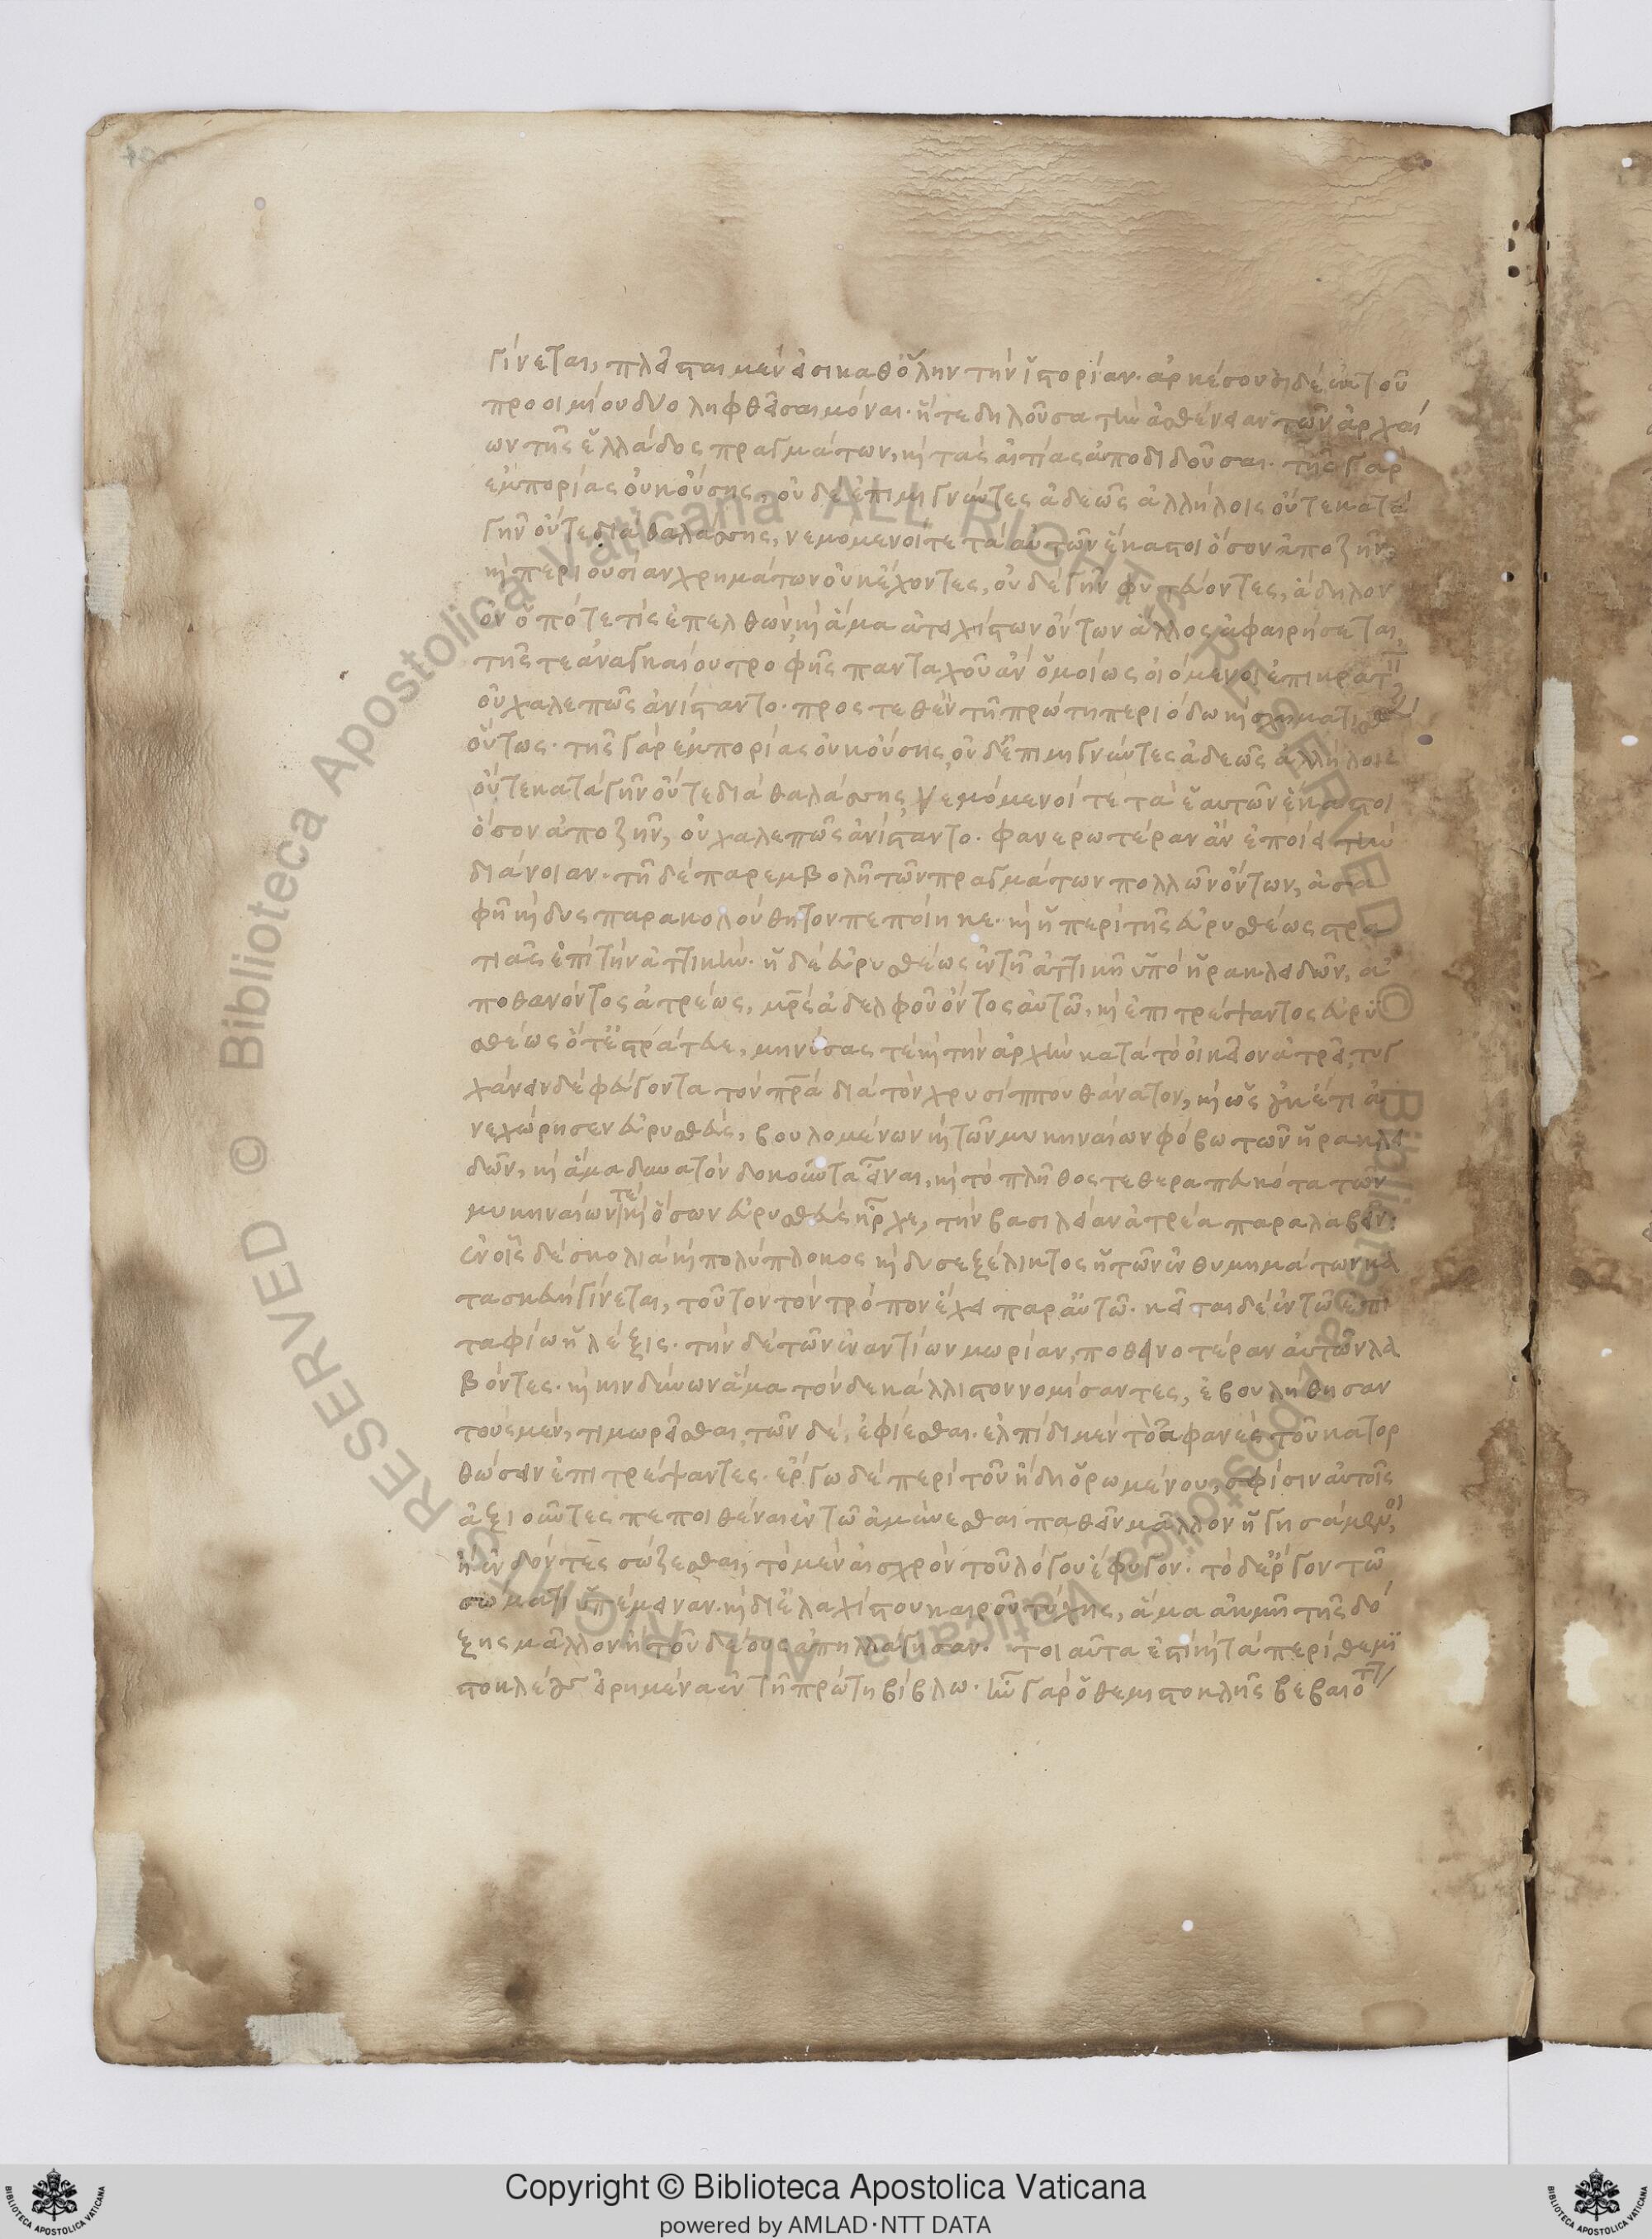 γίνεται, πλεῖσται μέν εἰσι καθ' ὅλην τὴν ἱστορίαν· ἀρκέσουσι δὲ ἐκ τοῦ
προοιμίου δύο ληφθεῖσαι μόναι· ἥ τε δηλοῦσα τὴν ἀσθένειαν τῶν ἀρχαί
ων τῆς ἑλλάδος πραγμάτων, καὶ τὰς αἰτίας ἀποδιδοῦσαι· τῆς γὰρ
ἐμπορίας οὐκ οὔσης, οὐδὲ ἐπιμιγνύντες ἀδεῶς ἀλλήλοις οὔτε κατὰ
γῆν οὔτε διὰ θαλάσσης, νεμόμενοί τε τὰ αὑτῶν ἕκαστοι ὅσον ἀποζῆν,
καὶ περιουσίαν χρημάτων οὐκ ἔχοντες, οὐδὲ γῆν φυτεύοντες, ἄδηλον
ὂν ὁπότε τίς ἐπελθὼν καὶ ἅμα ἀτειχίστων ὄντων ἄλλος ἀφαιρήσεται,
τῆς τε ἀναγκαίου τροφῆς πανταχοῦ ἂν ὁμοίως οἰόμενοι ἐπικρατ
οὐ χαλεπῶς ἀνίσταντο· προστεθὲν τῇ πρώτῃ περιόδω καὶ
οὕτως· τῆς γὰρ ἐμπορίας οὐκ οὔσης, οὐδ' ἐπιμιγνύντες ἀδεῶς ἀλλήλοις
οὔτε κατὰ γῆν οὔτε διὰ θαλάσσης νεμόμενοί τε τὰ ἑαυτῶν ἕκαστοι
ὅσον ἀποζῆν, οὐ χαλεπῶς ἀνίσταντο· φανερωτέραν ἂν ἐποίει τὴν
διάνοιαν· τῇ δὲ παρεμβολῇ τῶν πραγμάτων πολλῶν ὄντων, ἀσα
φῆ καὶ δυσπαρακολούθητον πεποίηκε· καὶ ἡ περὶ τῆς εὐρυσθέως στρα
τιᾶς ἐπὶ τὴν ἀττικήν· ἡ δὲ εὐρυσθέως ἐν τῇ ἀττικῇ ὑπὸ ἡρακλειδῶν, ἀ
ποθανόντος ἀτρέως, μρς ἀδελφοῦ ὄντος αὐτῶ, καὶ ἐπιτρέψαντος εὐρυ
σθέως ὅτ' ἐστράτευε, μηνύσας τε καὶ τὴν ἀρχὴν κατὰ τὸ οἰκεῖον ἀτρεῖ, τυγ
χάνειν δὲ φεύγοντα τὸν πρα διὰ τὸν χρυσίππου θάνατον, καὶ ὡς οὐκέτι ἀ
νεχώρησεν εὐρυσθεὺς, βουλομένων καὶ τῶν μυκηναίων φόβω τῶν ἡρακλει
δῶν, καὶ ἅμα δυνατὸν δοκοῦντα εἶναι, καὶ τὸ πλῆθος τεθεραπευκότα τῶν
μυκηναίων τε καὶ ὅσων εὐρυσθεὺς ἦρχε, τὴν βασιλείαν ἀτρέα παραλαβεῖν·
ἐν οἷς δὲ σκολιὰ καὶ πολύπλοκος καὶ δυσεξέλικτος ἡ τῶν ἐνθυμημάτων κα
τασκευὴ γίνεται, τοῦτον τὸν τρόπον ἔχει παρ' αὐτῶ· κεῖται δὲ ἐν τῶ ἐπι
ταφίω ἡ λέξις· τὴν δὲ τῶν ἐναντίων μωρίαν, ποθεινοτέραν αὐτῶν λα
βόντες· καὶ κινδύνων ἅμα τόνδε κάλλιστον νομίσαντες, ἐβουλήθησαν
τοὺς μὲν, τιμωρεῖσθαι, τῶν δὲ, ἐφίεσθαι· ἐλπίδι μὲν τὸ ἀφανὲς τοῦ κατορ
θώσειν ἐπιτρέψαντες· ἔργω δὲ περὶ τοῦ ἤδη ὁρωμένου, σφίσιν αὐτοῖς
ἀξιοῦντες πεποιθέναι ἐν τῶ ἀμύνεσθαι παθεῖν μᾶλλον ἡγησάμενοι,
ἢ ἐνδόντες σώζεσθαι, τὸ μὲν αἰσχρὸν τοῦ λόγου ἔφυγον· τὸ δ' ἔργον τῶ
σώματι ὑπέμειναν· καὶ δι' ἐλαχίστου καιροῦ τύχης, ἅμα ἀκμῇ τῆς δό
ξης μᾶλλον ἢ τοῦ δέους ἀπηλλάγησαν· τοιαῦτα ἐστὶ καὶ τὰ περὶ θεμι
στοκλέους εἰρημένα ἐν τῇ πρώτῃ βίβλω· ἦν γὰρ ὁ θεμιστοκλῆς βεβαιοτ
Copyright © Biblioteca Apostolica Vaticana
powered by AMLAD·NTT DATA